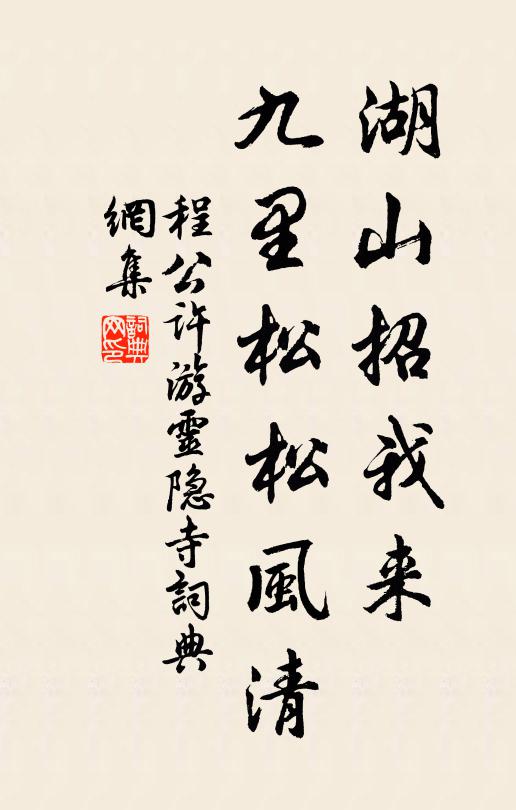 湖山招我来
九里松松風清
程公許游靈隐寺詞典
網集
詞典
网印